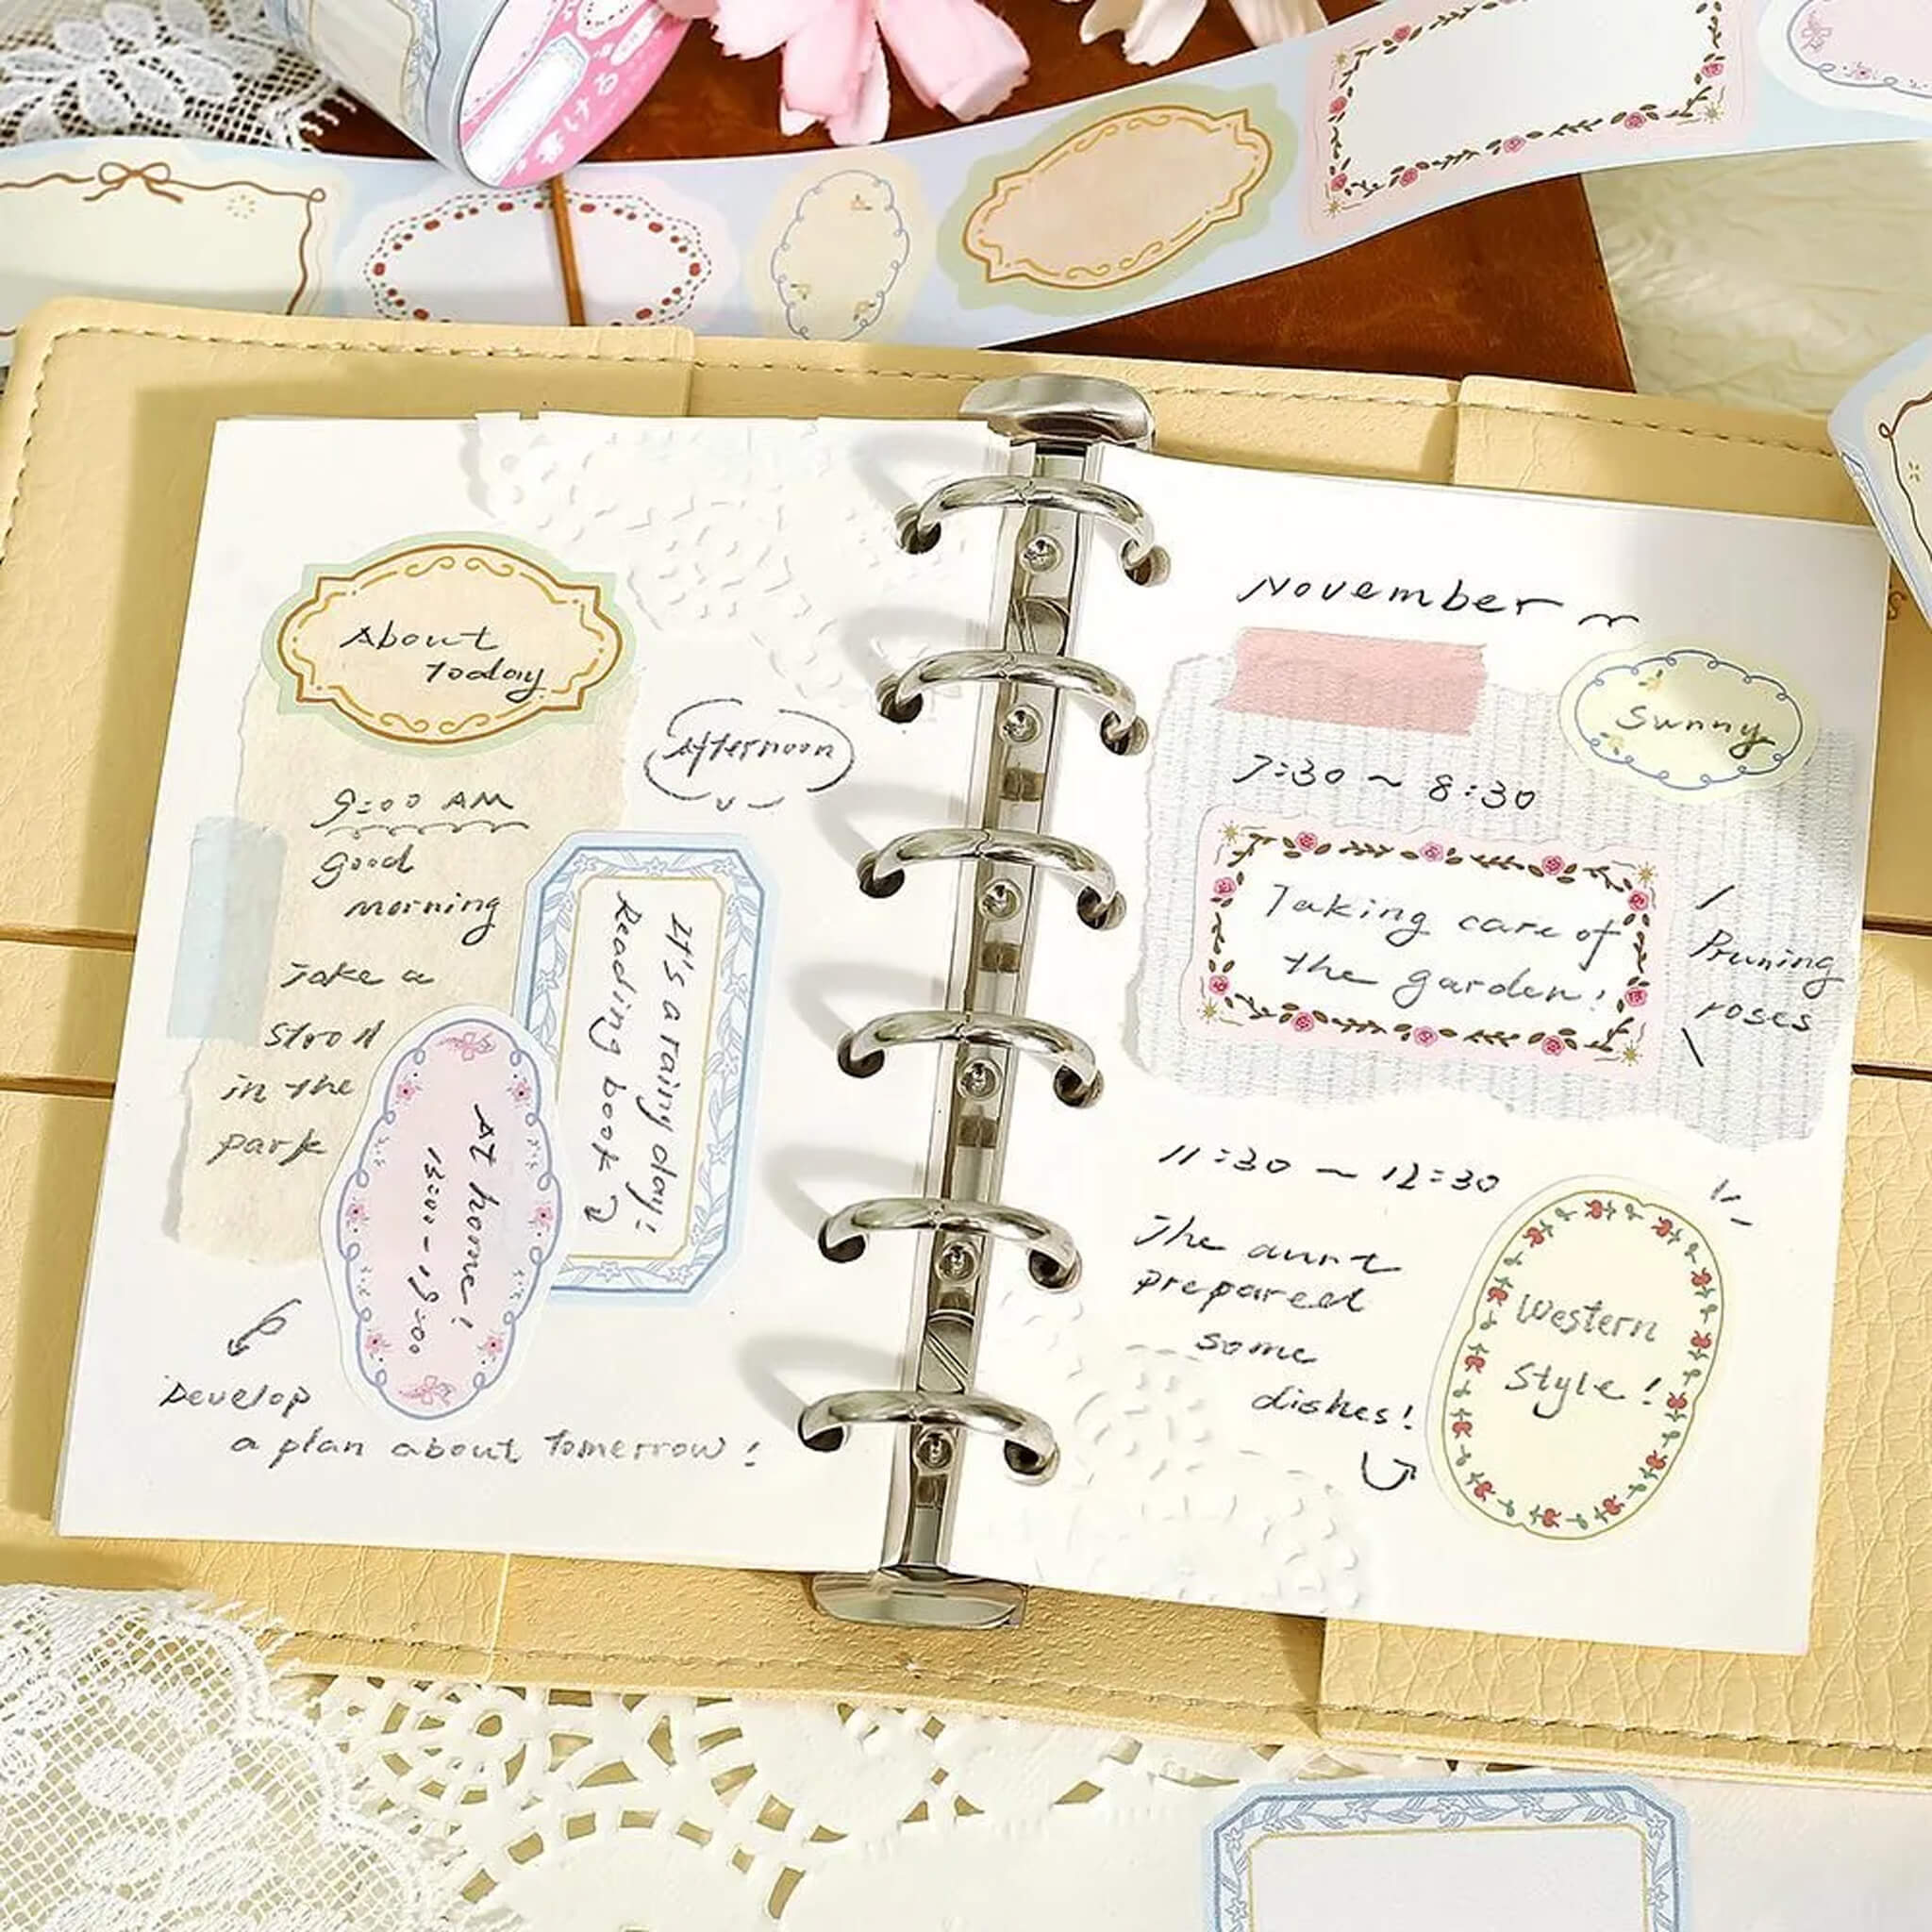 書ける
About
Today
Afternoon
9:00 AM
good
morning
Take a
stroll
in the
park
It's a rainy day!
Reading book
At home!
13:00 - 19:00
Develop
a plan about tomorrow!
November
Sunny
7:30 ~ 8:30
Taking care of
the garden!
Pruning
roses
11:30 ~ 12:30
The aunt
prepared
some
dishes!
Western
Style!